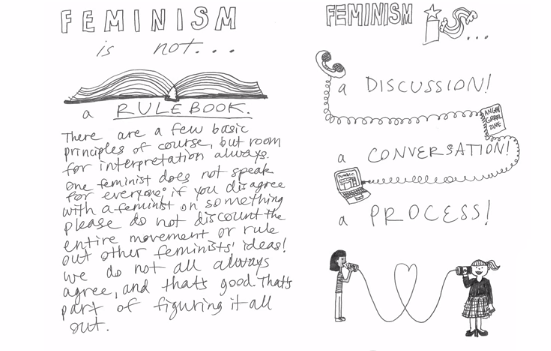 FEMINISM
is not...
a RULEBOOK.
There are a few basic
principles of course, but room
for interpretation always.
One feminist does not speak
for everyone; if you disagree
with a feminist on something
please do not discount the
entire movement or rule
out other feminists' ideas!
We do not all always
agree, and that's good. That's
part of figuring it all
out.
FEMINISM
IS...
a DISCUSSION!
a CONVERSATION!
a PROCESS!